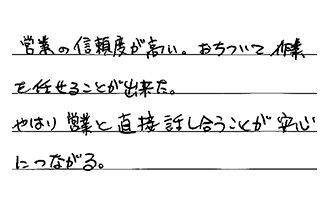 営業の信頼度が高い。おちついて作業
を任せることが出来た。
やはり営業と直接話し合うことが安心
につながる。